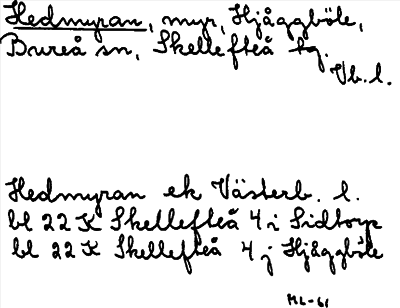 Hedmyran, myr, Hjåggböle,
Bureå sn, Skellefteå tg.
Vb.l.
Hedmyran ek Västerb. l.
bl 22 K Skellefteå 4 i Sidtorp
bl 22 K Skellefteå 4 j Hjåggböle
ML-61